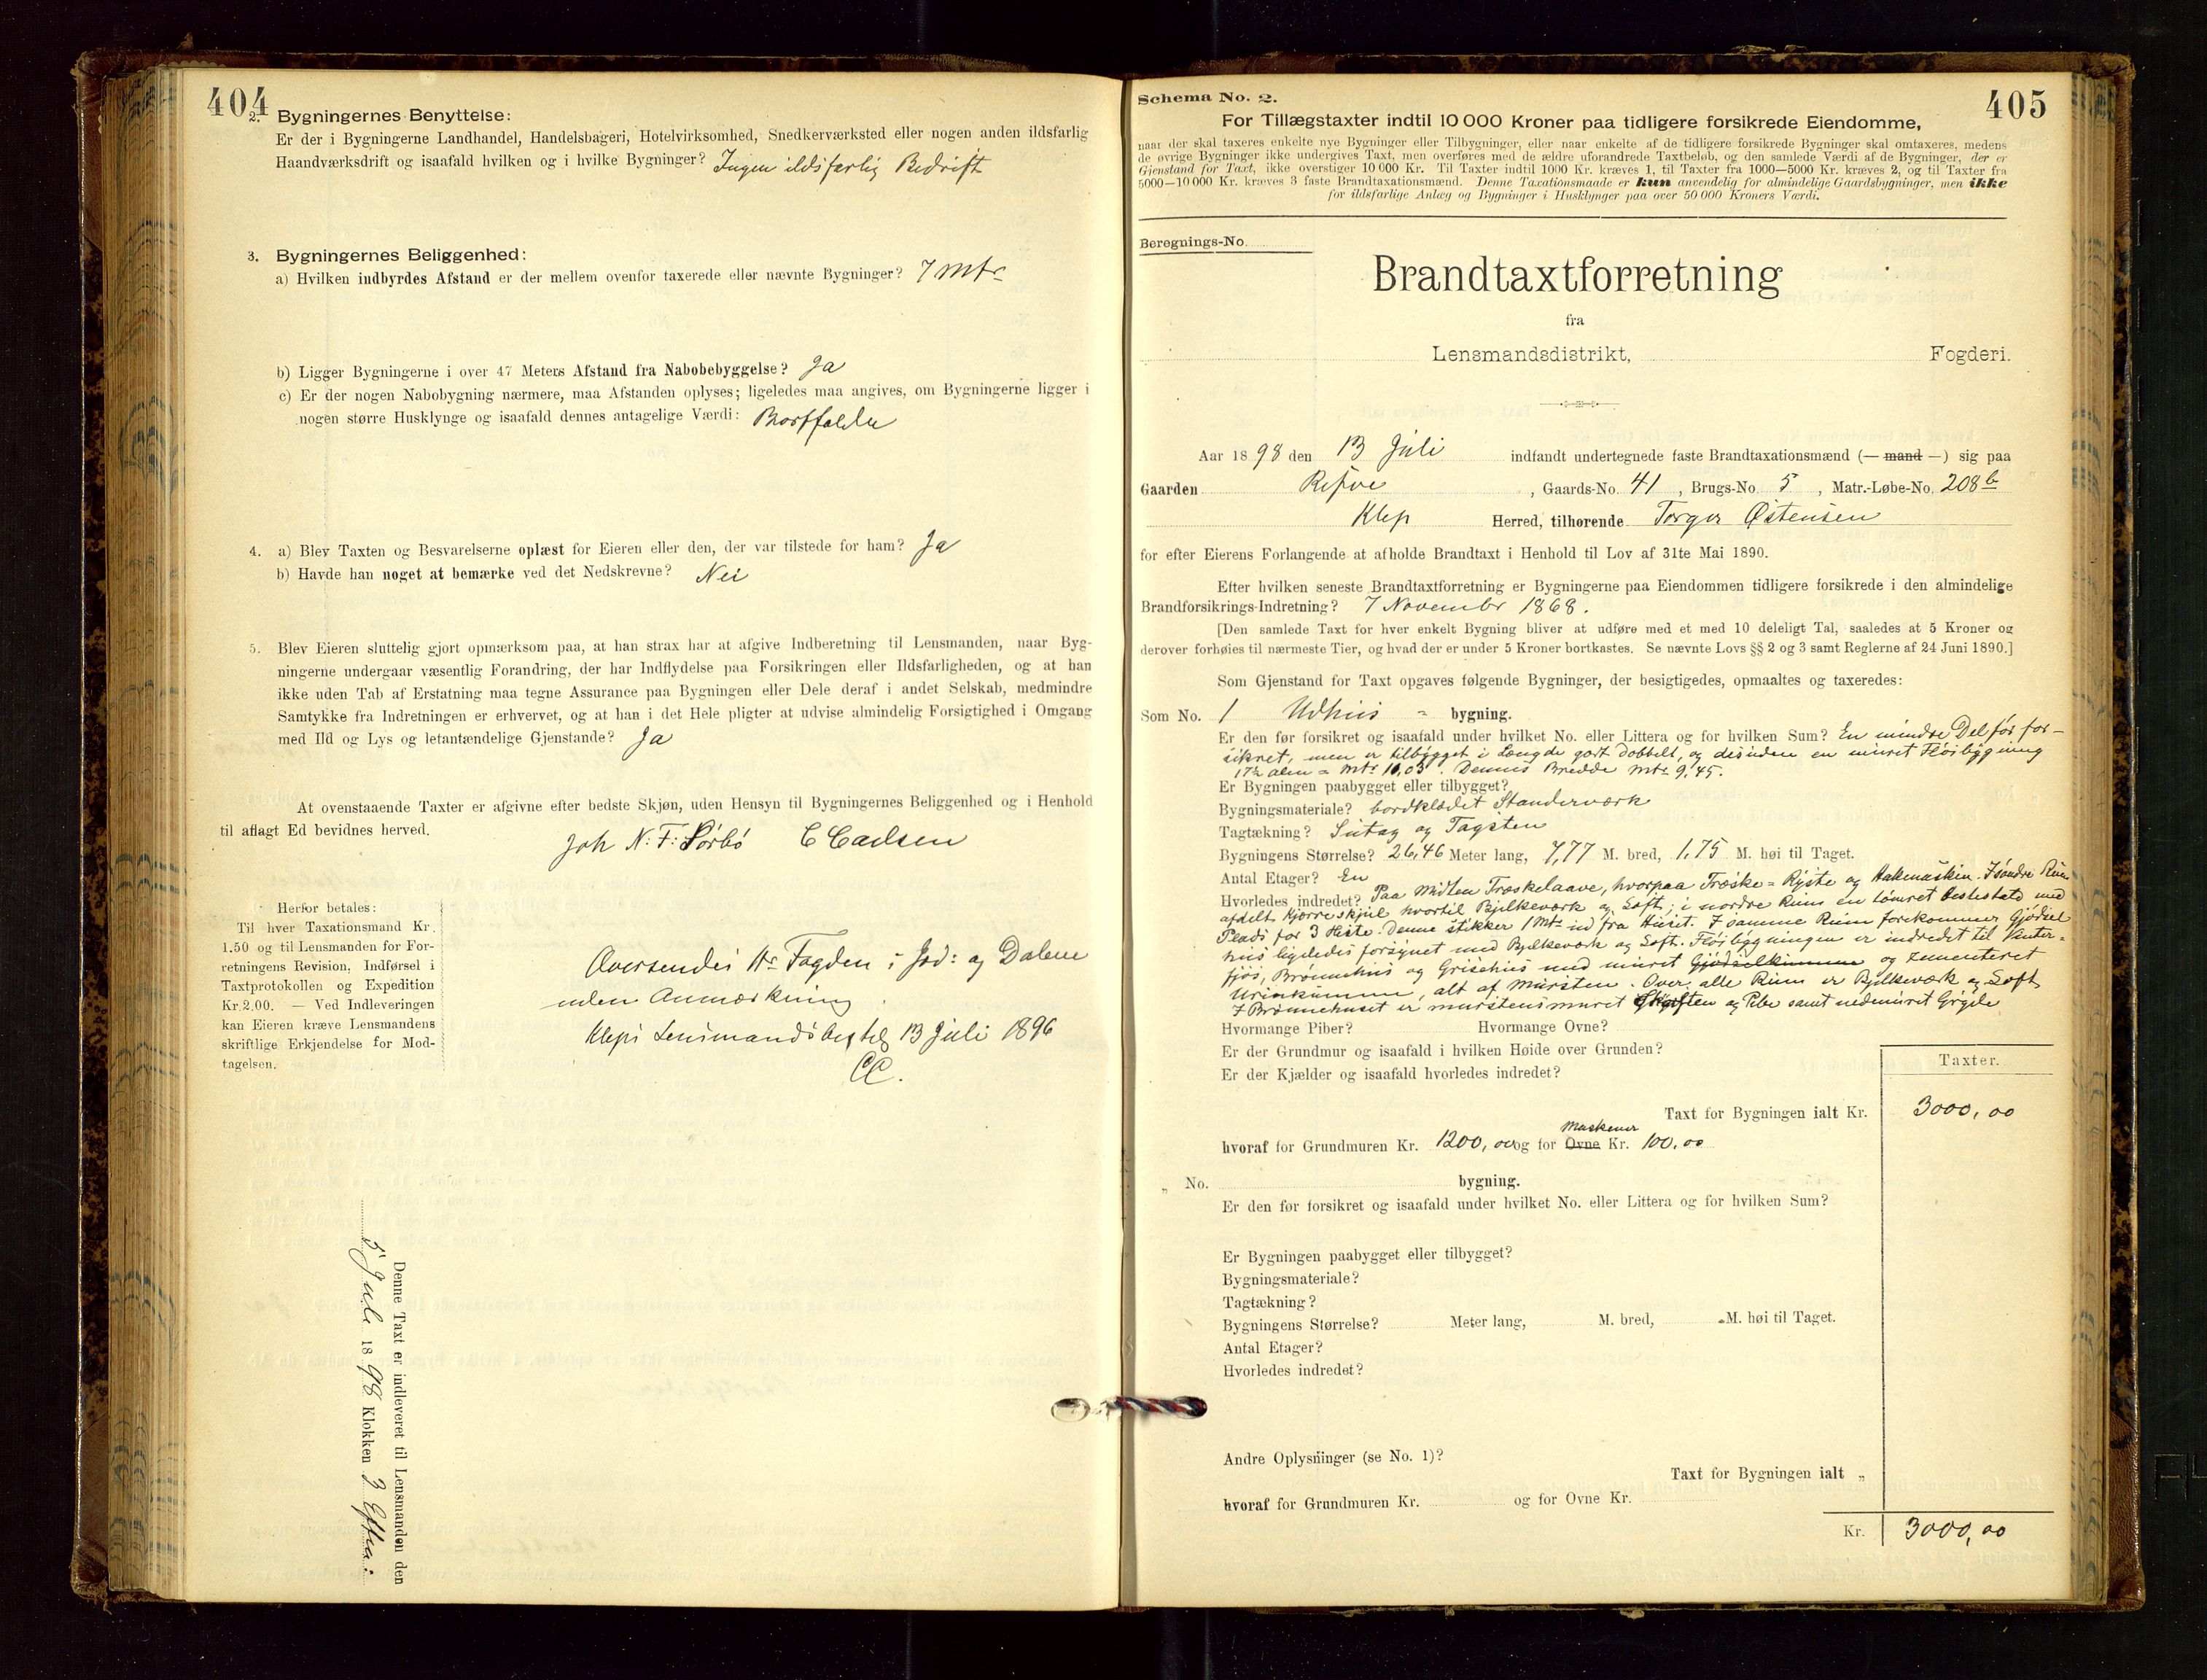 404
2. Bygningernes Benyttelse:
Er der i Bygningerne Landhandel, Handelsbageri, Hotelvirksomhed, Snedkerværksted eller nogen anden ildsfarlig
Haandværksdrift og isaafald hvilken og i hvilke Bygninger? Ingen ildsfarlig Bedrift
3. Bygningernes Beliggenhed:
a) Hvilken indbyrdes Afstand er der mellem ovenfor taxerede eller nævnte Bygninger? 7 Mtr
b) Ligger Bygningerne i over 47 Meters Afstand fra Nabobebyggelse? Ja
c) Er der nogen Nabobygning nærmere, maa Afstanden oplyses; ligeledes maa angives, om Bygningerne ligger i
nogen større Husklynge og isaafald dennes antagelige Værdi: Bortfalder
4. a) Blev Taxten og Besvarelserne oplæst for Eieren eller den, der var tilstede for ham? Ja
b) Havde han noget at bemærke ved det Nedskrevne? Nei
5. Blev Eieren sluttelig gjort opmærksom paa, at han strax har at afgive Indberetning til Lensmanden, naar Byg-
ningerne undergaar væsentlig Forandring, der har Indflydelse paa Forsikringen eller Ildsfarligheden, og at han
ikke uden Tab af Erstatning maa tegne Assurance paa Bygningen eller Dele deraf i andet Selskab, medmindre
Samtykke fra Indretningen er erhvervet, og at han i det Hele pligter at udvise almindelig Forsigtighed i Omgang
med Ild og Lys og letantændelige Gjenstande? Ja
At ovenstaaende Taxter er afgivne efter bedste Skjøn, uden Hensyn til Bygningernes Beliggenhed og i Henhold
til aflagt Ed bevidnes herved.
Joh N: F: Sørbø C Carlsen
Herfor betales:
Til hver Taxationsmand Kr.
1.50 og til Lensmanden for For-
retningens Revision, Indførsel i
Taxtprotokollen og Expedition
Kr. 2.00. — Ved Indleveringen
kan Eieren kræve Lensmandens
skriftlige Erkjendelse for Mod-
tagelsen.
Oversendes Hr Fogden i Jæd: og Dalene
uden Anmærkning.
Kleps Lensmandsbestilg 13 Juli 1896
CC.
Denne Taxt er indleveret til Lensmanden den
5 Juli 1898 Klokken 3 Efterm:
405
Schema No. 2.
For Tillægstaxter indtil 10 000 Kroner paa tidligere forsikrede Eiendomme,
naar der skal taxeres enkelte nye Bygninger eller Tilbygninger, eller naar enkelte af de tidligere forsikrede Bygninger skal omtaxeres, medens
de øvrige Bygninger ikke undergives Taxt, men overføres med de ældre uforandrede Taxtbeløb, og den samlede Værdi af de Bygninger, der er
Gjenstand for Taxt, ikke overstiger 10 000 Kr. Til Taxter indtil 1000 Kr. kræves 1, til Taxter fra 1000—5000 Kr. kræves 2, og til Taxter fra
5000—10 000 Kr. kræves 3 faste Brandtaxationsmænd. Denne Taxationsmaade er kun anvendelig for almindelige Gaardsbygninger, men ikke
for ildsfarlige Anlæg og Bygninger i Husklynger paa over 50 000 Kroners Værdi.
Beregnings-No.
Brandtaxtforretning
fra
Lensmandsdistrikt, Fogderi.
Aar 1898 den 13 Juli indfandt undertegnede faste Brandtaxationsmænd (— mand —) sig paa
Gaarden Refve, Gaards-No. 41, Brugs-No. 5, Matr.-Løbe-No. 208b
Klep Herred, tilhørende Torger Østensen
for efter Eierens Forlangende at afholde Brandtaxt i Henhold til Lov af 31te Mai 1890.
Efter hvilken seneste Brandtaxtforretning er Bygningerne paa Eiendommen tidligere forsikrede i den almindelige
Brandforsikrings-Indretning? 7 November 1868.
[Den samlede Taxt for hver enkelt Bygning bliver at udføre med et med 10 deleligt Tal, saaledes at 5 Kroner og
derover forhøies til nærmeste Tier, og hvad der er under 5 Kroner bortkastes. Se nævnte Lovs §§ 2 og 3 samt Reglerne af 24 Juni 1890.]
Som Gjenstand for Taxt opgaves følgende Bygninger, der besigtigedes, opmaaltes og taxeredes:
Som No. 1 Udhus - bygning.
Er den før forsikret og isaafald under hvilket No. eller Littera og for hvilken Sum? En mindre Del før for-
sikret, men er tilbygget i Længde godt dobbelt, og desuden en muret Fløibygning
17½ alen = Mtr 11,03. Dennes Bredde Mtr 9,45.
Er Bygningen paabygget eller tilbygget?
Bygningsmateriale? bordklædet Standerværk
Tagtækning? Sutag og Tagsten
Bygningens Størrelse? 26,46 Meter lang, 7,77 M. bred, 1,75 M. høi til Taget.
Antal Etager? En
Hvorledes indredet? Paa Midten Træskelaave, hvorpaa Træske-Ryste og Hakemaskin. I søndre Rum
afdelt Kjørreskjul hvortil Bjelkeværk og Loft; i nordre Rum en tømret Hestestald med
Plads for 3 Heste. Denne stikker 1 Mtr ud fra Huset. I samme Rum forekommer Gjødsel
hus ligeledes forsynet med Bjelkeværk og Loft. Fløibygningen er indredet til Vinter-
fjøs, Brønnehus og Grisehus med muret Gjødselkummen og zementeret
Urinkumme, alt af Mursten. Over alle Rum er Bjelkeværk og Loft
I Brønnehuset er murstensmuret Skorsten og Pibe samt nedmuret Gryde
Hvormange Piber? Hvormange Ovne?
Er der Grundmur og isaafald i hvilken Høide over Grunden?
Er der Kjælder og isaafald hvorledes indredet?
Taxter.
Taxt for Bygningen ialt Kr. 3000,00
Maskener
hvoraf for Grundmuren Kr. 1200,00 og for Ovne Kr. 100,00
„ No. bygning.
Er den før forsikret og isaafald under hvilket No. eller Littera og for hvilken Sum?
Er Bygningen paabygget eller tilbygget?
Bygningsmateriale?
Tagtækning?
Bygningens Størrelse? Meter lang, M. bred, M. høi til Taget.
Antal Etager?
Hvorledes indredet?
Andre Oplysninger (se No. 1)?
Taxt for Bygningen ialt „
hvoraf for Grundmuren Kr. og for Ovne Kr.
Kr. 3000,00